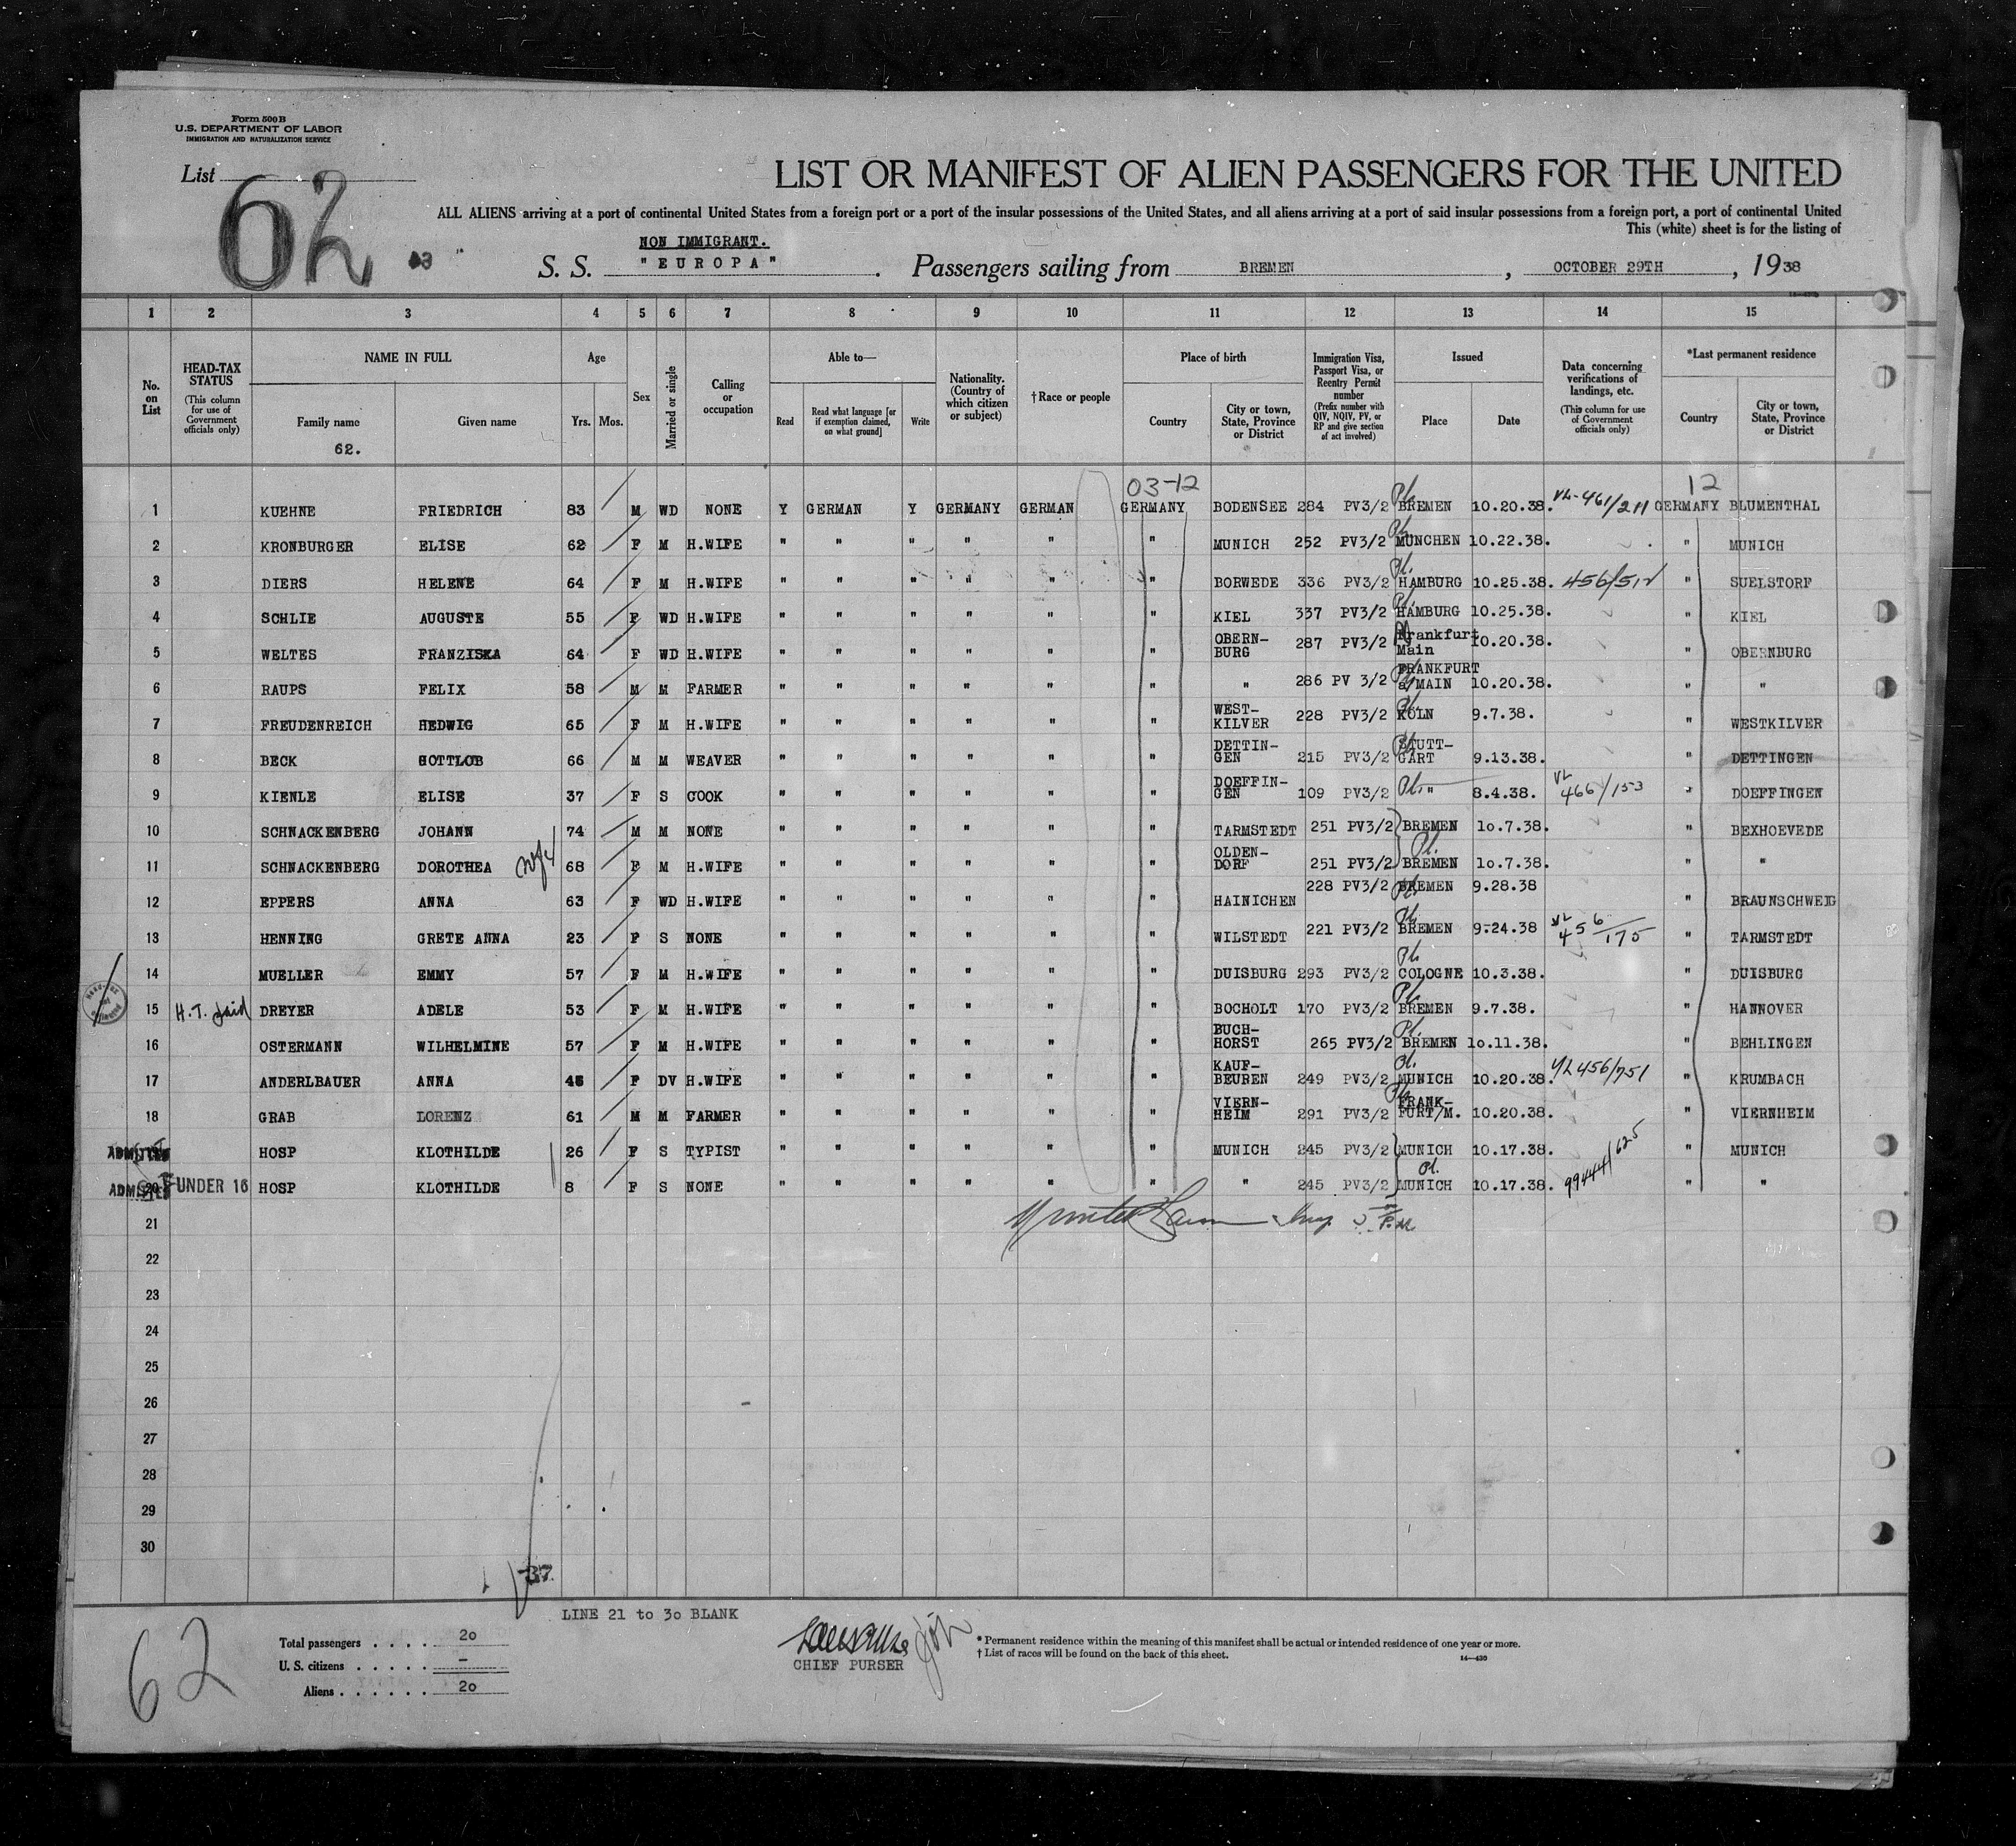 Form 500 B
U.S. DEPARTMENT OF LABOR
IMMIGRATION AND NATURALIZATION SERVICE
List 62
LIST OR MANIFEST OF ALIEN PASSENGERS FOR THE UNITED
ALL ALIENS arriving at a port of continental United States from a foreign port or a port of the insular possessions of the United States, and all aliens arriving at a port of said insular possessions from a foreign port, a port of continental United
This (white) sheet is for the listing of
NON IMMIGRANT.
S. S. "EUROPA". Passengers sailing from BREMEN, OCTOBER 29TH, 1938
1 2 3 4 5 6 7 8 9 10 11 12 13 14 15
No. on List
HEAD-TAX STATUS (This column for use of Government officials only)
NAME IN FULL
Family name
62.
Given name
Age
Yrs. Mos.
Sex
Married or single
Calling or occupation
Able to—
Read
Read what language [or if exemption claimed, on what ground]
Write
Nationality. (Country of which citizen or subject)
†Race or people
Place of birth
Country
City or town, State, Province or District
Immigration Visa, Passport Visa, or Reentry Permit number (Prefix number with QIV, NQIV, PV, or RP and give section of act involved)
Issued
Place
Date
Data concerning verifications of landings, etc. (This column for use of Government officials only)
*Last permanent residence
Country
City or town, State, Province or District
03-12 12
1 KUEHNE FRIEDRICH 83 M WD NONE Y GERMAN Y GERMANY GERMAN GERMANY BODENSEE 284 PV3/2 BREMEN 10.20.38. VL-461/211 GERMANY BLUMENTHAL
2 KRONBURGER ELISE 62 F M H.WIFE " " " " " " MUNICH 252 PV3/2 MUNCHEN 10.22.38. " MUNICH
3 DIERS HELENE 64 F M H.WIFE " " " " " " BORWEDE 336 PV3/2 HAMBURG 10.25.38. 456/512 " SUELSTORF
4 SCHLIE AUGUSTE 55 F WD H.WIFE " " " " " " KIEL 337 PV3/2 HAMBURG 10.25.38. " KIEL
5 WELTES FRANZISKA 64 F WD H.WIFE " " " " " " OBERN-BURG 287 PV3/2 Frankfurt Main 10.20.38. " OBERNBURG
6 RAUPS FELIX 58 M M FARMER " " " " " " " 286 PV 3/2 FRANKFURT a/MAIN 10.20.38. " "
7 FREUDENREICH HEDWIG 65 F M H.WIFE " " " " " " WEST-KILVER 228 PV3/2 KÖLN 9.7.38. " WESTKILVER
8 BECK GOTTLOB 66 M M WEAVER " " " " " " DETTIN-GEN 215 PV3/2 STUTT-GART 9.13.38. " DETTINGEN
9 KIENLE ELISE 37 F S COOK " " " " " " DOEFFIN-GEN 109 PV3/2 " 8.4.38. VL 466/153 " DOEFFINGEN
10 SCHNACKENBERG JOHANN 74 M M NONE " " " " " " TARMSTEDT 251 PV3/2 BREMEN 10.7.38. " BEXHOEVEDE
11 SCHNACKENBERG DOROTHEA wife 68 F M H.WIFE " " " " " " OLDEN-DORF 251 PV3/2 BREMEN 10.7.38. " "
12 EPPERS ANNA 63 F WD H.WIFE " " " " " " HAINICHEN 228 PV3/2 BREMEN 9.28.38 " BRAUNSCHWEIG
13 HENNING GRETE ANNA 23 F S NONE " " " " " " WILSTEDT 221 PV3/2 BREMEN 9-24.38 VL 456/175 " TARMSTEDT
14 MUELLER EMMY 57 F M H.WIFE " " " " " " DUISBURG 293 PV3/2 COLOGNE 10.3.38. " DUISBURG
15 H.T. paid DREYER ADELE 53 F M H.WIFE " " " " " " BOCHOLT 170 PV3/2 BREMEN 9.7.38. " HANNOVER
16 OSTERMANN WILHELMINE 57 F M H.WIFE " " " " " " BUCH-HORST 265 PV3/2 BREMEN 10.11.38. " BEHLINGEN
17 ANDERLBAUER ANNA F DV H.WIFE " " " " " " KAUF-BEUREN 249 PV3/2 MUNICH 10.20.38. VL 456/751 " KRUMBACH
18 GRAB LORENZ 61 M M FARMER " " " " " " VIERN-HEIM 291 PV3/2 FRANK-FURT/M. 10.20.38. " VIERNHEIM
ADMITTED HOSP KLOTHILDE 26 F S TYPIST " " " " " " MUNICH 245 PV3/2 MUNICH 10.17.38. " MUNICH
ADMITTED 20 UNDER 16 HOSP KLOTHILDE 8 F S NONE " " " " " " " 245 PV3/2 MUNICH 10.17.38. 99444/625 " "
21
22
23
24
25
26
27
28
29
30
37
LINE 21 to 30 BLANK
62
Total passengers . . . . 20
U. S. citizens . . . . . –
Aliens . . . . . . 20
CHIEF PURSER
* Permanent residence within the meaning of this manifest shall be actual or intended residence of one year or more.
† List of races will be found on the back of this sheet.
14—430